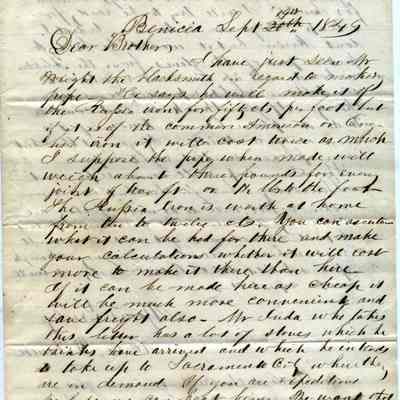 Benicia Sept 19th 20th 1849
Dear Brother,
I have just seen Mr
Wright the blacksmith in regard to making
pipe. He says he will make it of
the Russia iron for fifty cts per foot but
if it is of the common American or Eng-
lish iron it will cost twice as much
I suppose the pipe when made will
weigh about three pounds for every
joint of two ft. or the foot
The Russia Iron is worth at home
from ten to twelve cts. You can ascertain
what it can be had for there and make
your calculations whether it will cost
more to make it there than here.
If it can be made here as cheap it
will be much more convenient and
save freight also. Mr Juda who takes
this letter has a lot of stoves which he
thinks have arrived and which he intends
to take up to Sacramento City where they
are in demand If you are expeditious
We want that